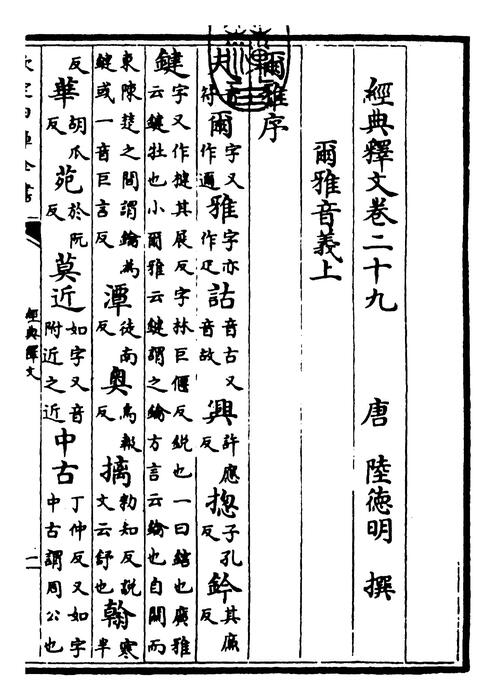 經典釋文卷二十九　唐　陸德明　撰
爾雅音義上
爾雅序
夫音符爾字又作邇雅字亦作疋詁音古又音故興許應反揔子孔反鈐其廉反
鍵字又作揵其展反字林巨偃反鋭也一曰轄也廣雅云鍵牡也小爾雅云鍵謂之鑰方言云鑰也自關而
東陳楚之間謂鑰為鍵或一音巨言反潭徒南反奥烏報反摛勑知反説文云舒也翰寒半
反華胡瓜反苑於阮反莫近如字又音附近之近中古丁仲反又如字中古謂周公也
欽定四庫全書
經典釋文
一